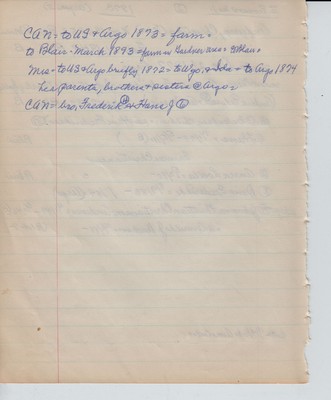 CAN = to US & Argo 1873 = farm =
to Blair - March 1893 = farm = Gardner was =
Mrs = to US & Argo briefly 1872 = to Wyo. & Ida = to Argo 1874
her parents, brothers & sisters @ Argo =
CAN = bro, Frederick & Hans J